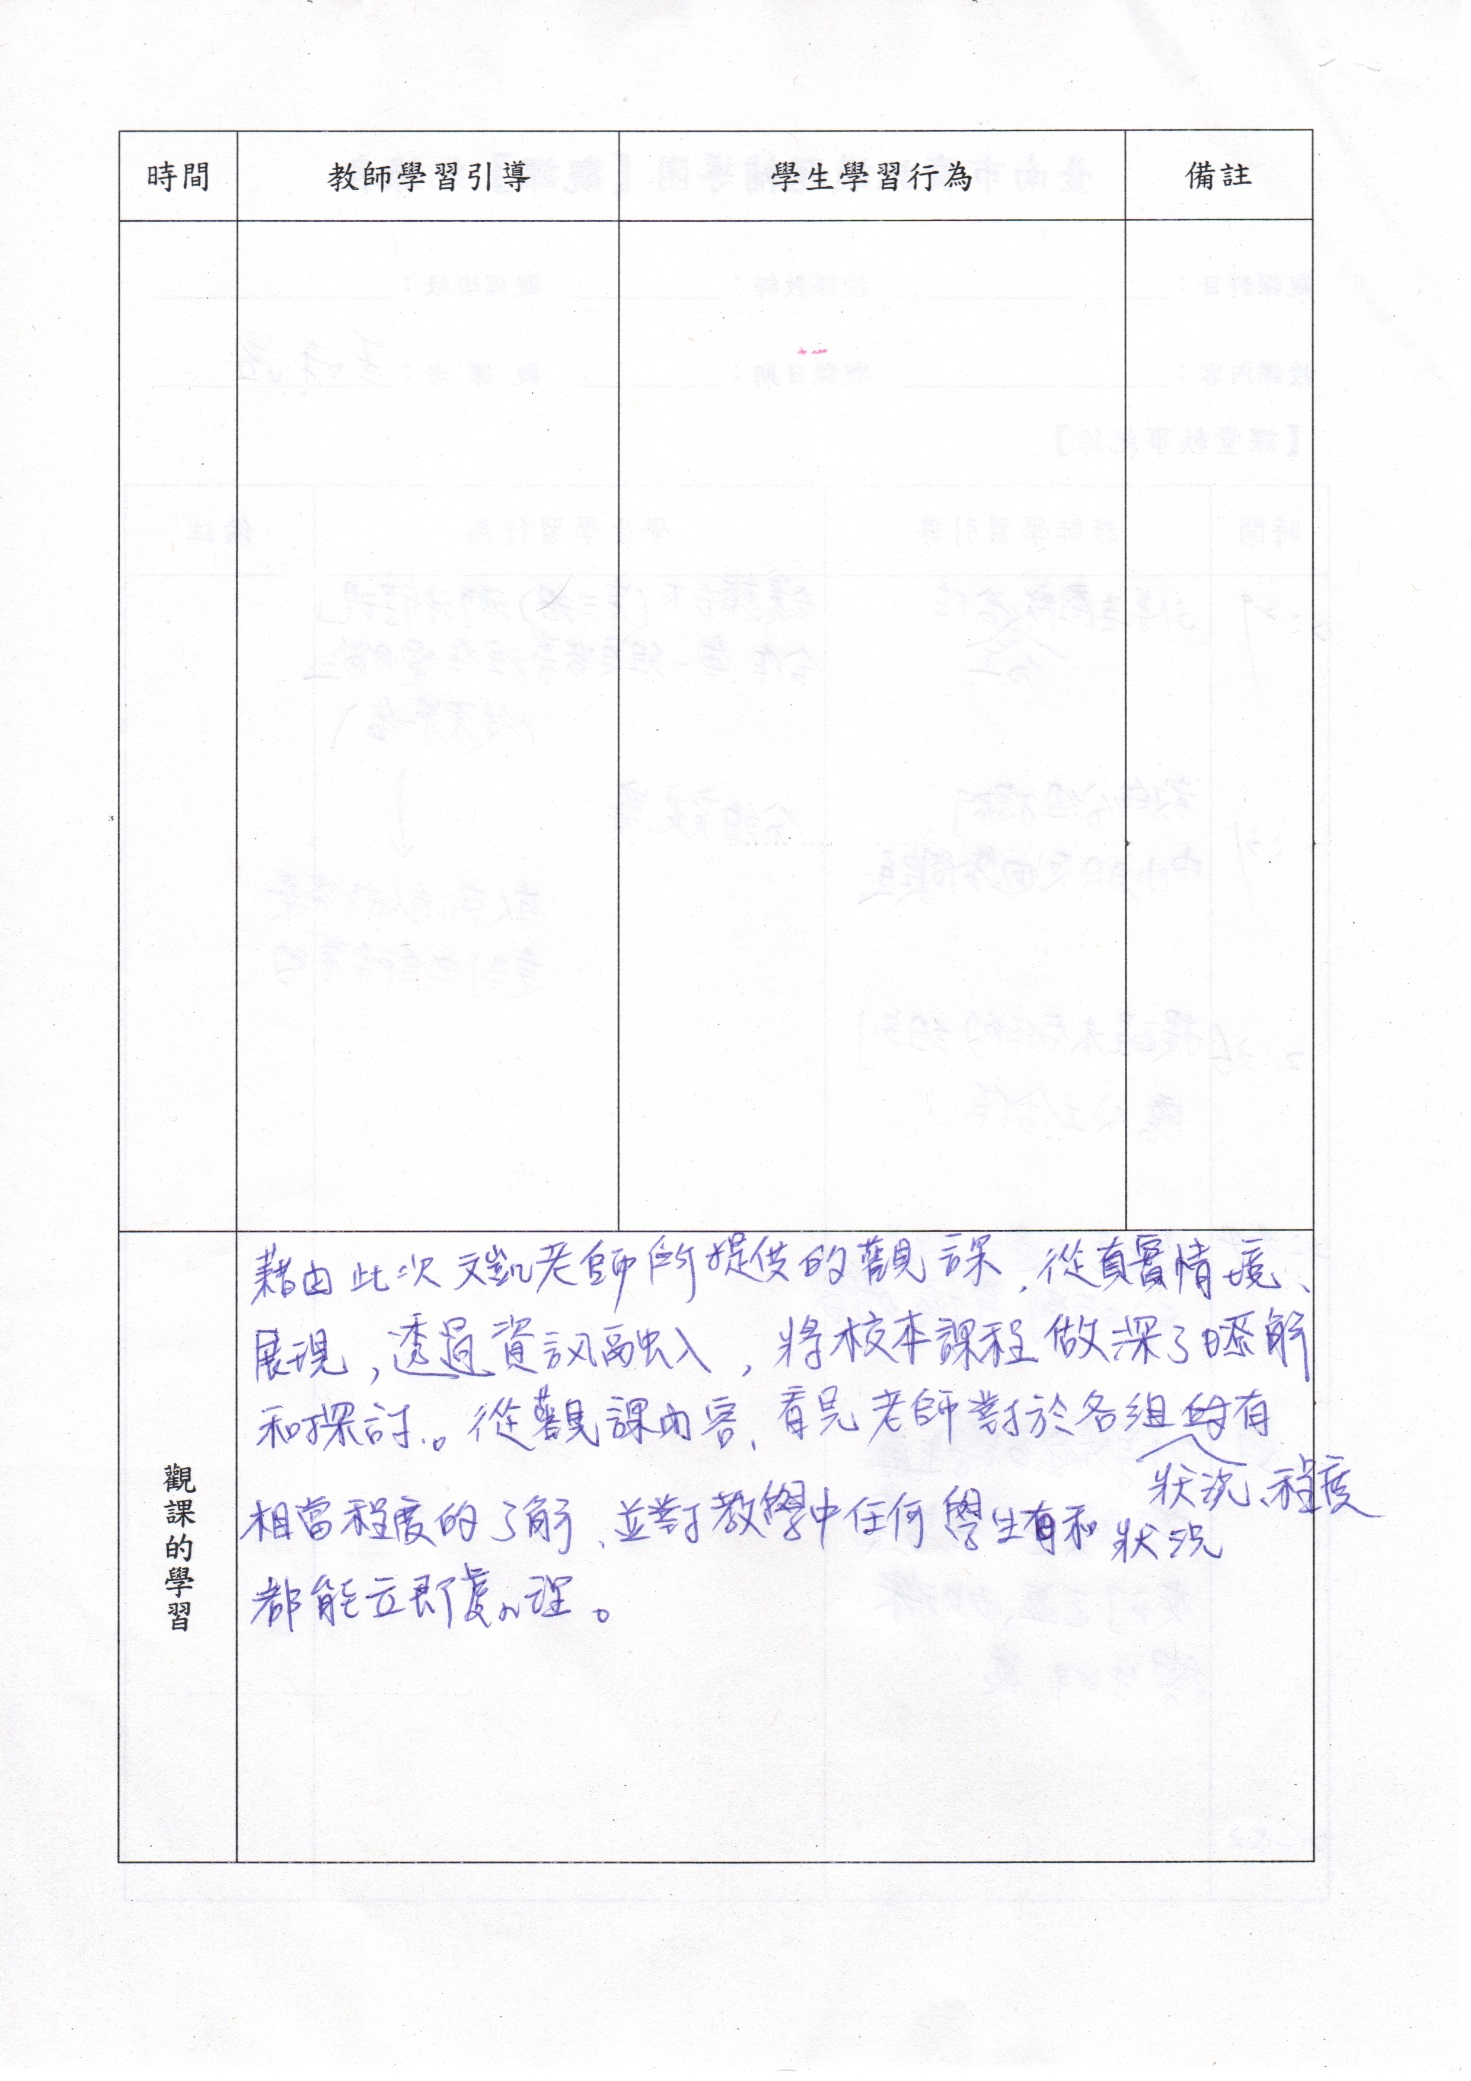 時間 教師學習引導 學生學習行為 備註
觀課的學習
藉由此次文凱老師所提供的觀課、從真實情境、
展現，透過資訊融入，將校本課程做深了瞭解
和探討。從觀課內容、看見老師對於各組的有
狀況、程度
相當程度的了解、並對教學中任何學生有和狀況
都能立即處理。